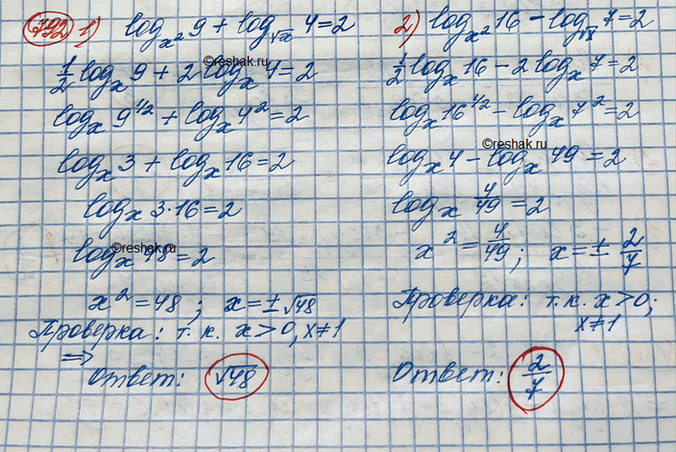 792 1) log_{x²} 9 + log_{√x} 4 = 2
½ log_x 9 + 2 log_x 4 = 2
log_x 9^{1/2} + log_x 4² = 2
log_x 3 + log_x 16 = 2
log_x 3·16 = 2
log_x 48 = 2
©reshak.ru
x² = 48 ; x = ± √48
Проверка: т.к. x > 0, x ≠ 1
⇒
Ответ: √48
2) log_{x²} 16 - log_{√x} 7 = 2
©reshak.ru
½ log_x 16 - 2 log_x 7 = 2
log_x 16^{1/2} - log_x 7² = 2
©reshak.ru
log_x 4 - log_x 49 = 2
log_x 4/49 = 2
x² = 4/49 ; x = ± 2/7
Проверка: т.к. x > 0;
x ≠ 1
Ответ: 2/7